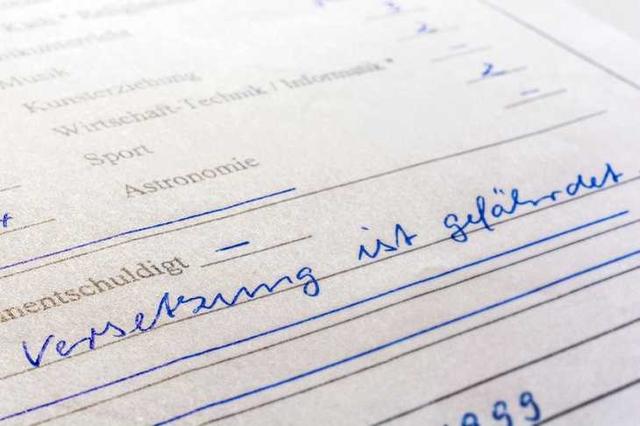 Musik 3
Kunsterziehung 2
Wirtschaft-Technik / Informatik * –
Sport 2
Astronomie –
nentschuldigt –
Versetzung ist gefährdet.
999